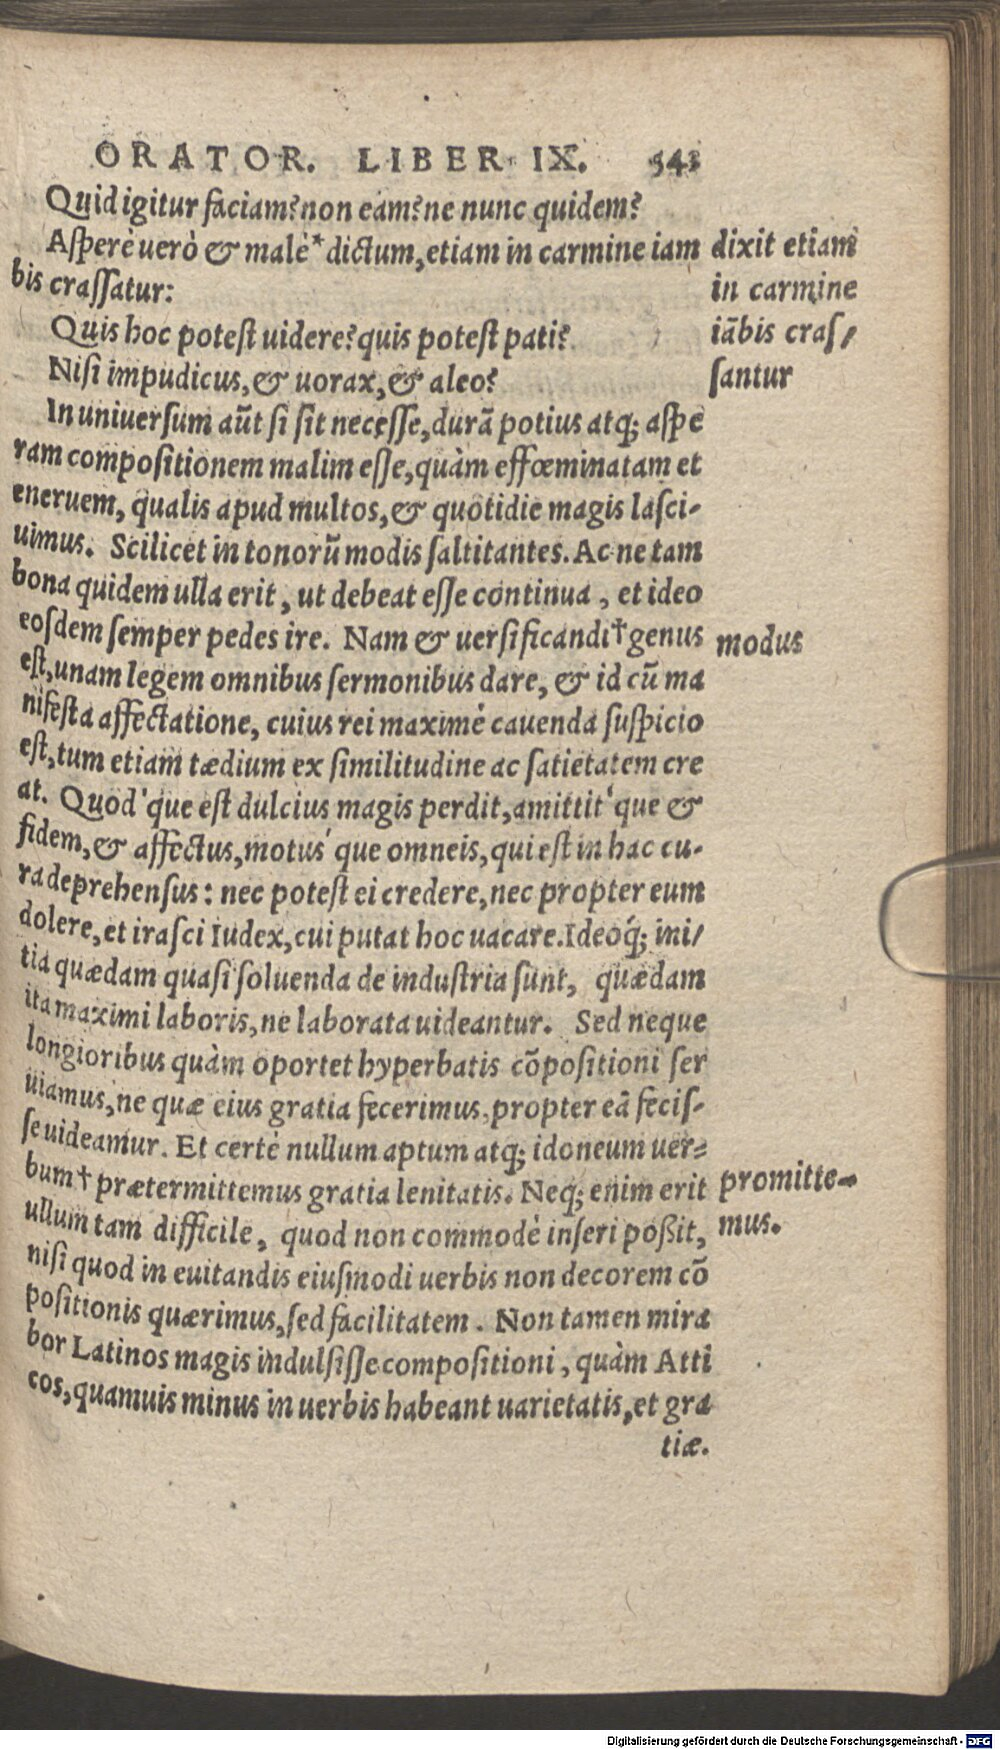 ORATOR. LIBER IX. 543
Quid igitur faciam? non eam? ne nunc quidem?
Asperè uerò & malè * dictum, etiam in carmine iam
bis crassatur:
Quis hoc potest uidere? quis potest pati?
Nisi impudicus, & uorax, & aleo?
In uniuersum aūt si sit necesse, durā potius atq; aspe
ram compositionem malim esse, quàm effœminatam et
eneruem, qualis apud multos, & quotidie magis lasci-
uimus. Scilicet in tonorū modis saltitantes. Ac ne tam
bona quidem ulla erit, ut debeat esse continua, et ideo
eosdem semper pedes ire. Nam & uersificandi † genus
est, unam legem omnibus sermonibus dare, & id cū ma
nifesta affectatione, cuius rei maximè cauenda suspicio
est, tum etiam tædium ex similitudine ac satietatem cre
at. Quod'que est dulcius magis perdit, amittit'que &
fidem, & affectus, motus'que omneis, qui est in hac cu-
ra deprehensus: nec potest ei credere, nec propter eum
dolere, et irasci Iudex, cui putat hoc uacare. Ideóq; ini/
tia quædam quasi soluenda de industria sunt, quædam
ita maximi laboris, ne laborata uideantur. Sed neque
longioribus quàm oportet hyperbatis cōpositioni ser
uiamus, ne quæ eius gratia fecerimus, propter eā fecis-
se uideamur. Et certè nullum aptum atq; idoneum uer=
bum † prætermittemus gratia lenitatis. Neq; enim erit
ullum tam difficile, quod non commodè inseri poßit,
nisi quod in euitandis eiusmodi uerbis non decorem cō
positionis quærimus, sed facilitatem. Non tamen mira
bor Latinos magis indulsisse compositioni, quàm Atti
cos, quamuis minus in uerbis habeant uarietatis, et gra
tiæ.
dixit etiam
in carmine
iābis cras/
santur
modus
promitte-
mus.
Digitalisierung gefördert durch die Deutsche Forschungsgemeinschaft - DFG